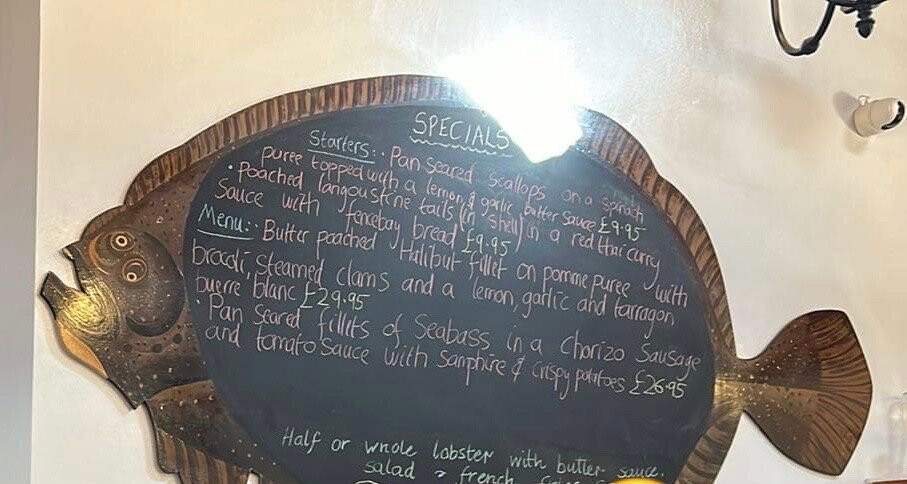 SPECIALS
Starters: · Pan seared scallops on a spinach
puree topped with a lemon & garlic butter sauce £9.95
· Poached langoustine tails (in shell) in a red thai curry
sauce with fencebay bread £9.95
Menu: · Butter poached Halibut fillet on pomme puree with
brocoli, steamed clams and a lemon, garlic and tarragon
buerre blanc £29.95
· Pan seared fillets of Seabass in a Chorizo Sausage
and tomato sauce with samphire & crispy potatoes £26.95
Half or whole lobster with butter sauce,
salad & french